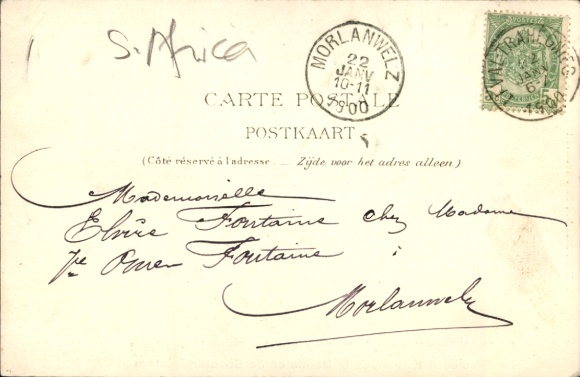 S. Africa
MORLANWELZ
22
JANV
10-11
1900
CARTE POSTALE
POSTKAART
(Côté réservé à l'adresse. — Zijde voor het adres alleen)
Mademoiselle
Elvire Fontaine chez Madame
Vve Omer Fontaine à
Morlanwelz